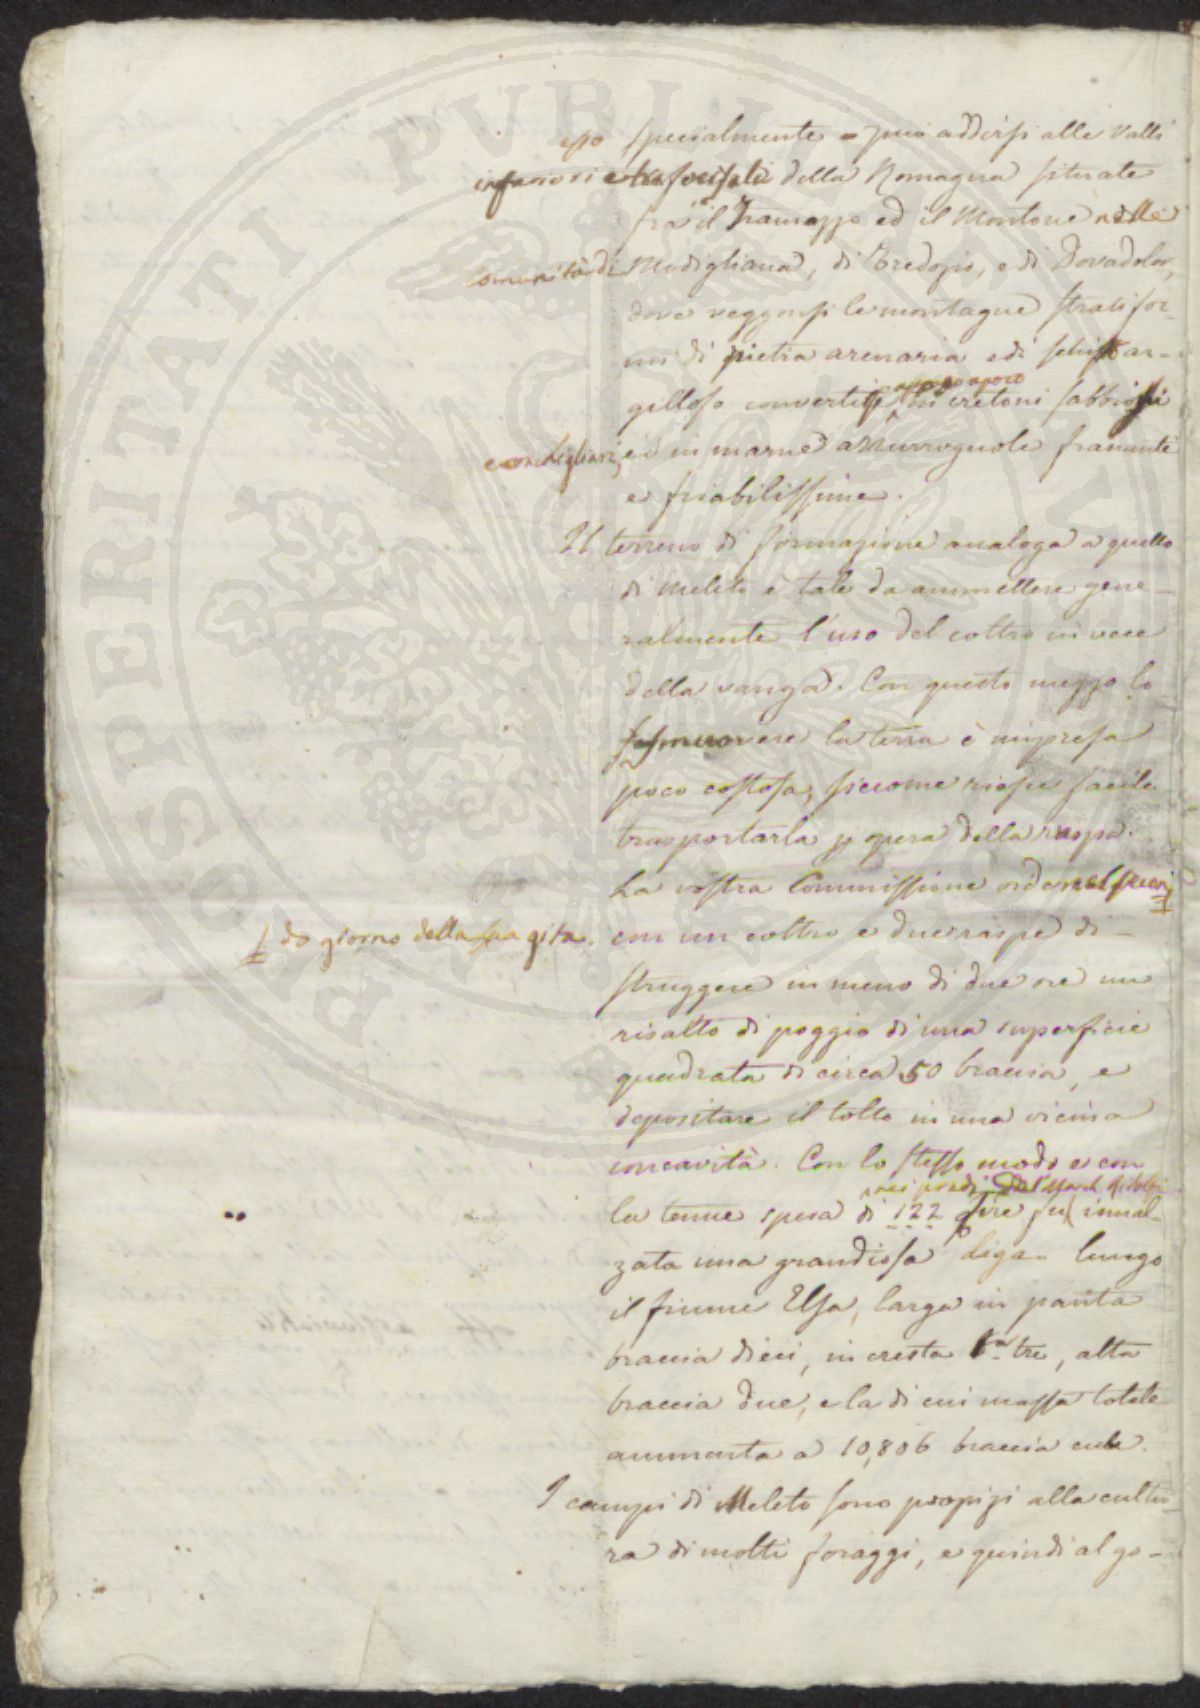 esso specialmente può addirsi alle valli
inferiori e trafocifali della Romagna situate
fra il Tramazzo ed il Montone nelle
Comunità di Modigliana, di Tredozio, e di Dovadola,
dove veggonsi le montagne stratifor-
mi di pietra arenaria e di schisto ar-
gilloso convertirsi a poco a poco in cretoni sabbiosi
e conchigliari, ed in marne azzurrognole franante
e friabilissime.
Il terreno di formazione analoga a quello
di Meleto è tale da ammettere gene-
ralmente l'uso del coltro in vece
della vanga. Con questo mezzo lo
smuovere la terra è impresa
poco costosa, siccome riesce facile
trasportarla p opera della ruspa.
La vostra Commissione vide nel secon
do giorno della sua gita con un coltro e due raspe di-
struggere in meno di due ore un
risalto di poggio di una superficie
quadrata di circa 50 braccia, e
depositare il tolto in una vicina
concavità. Con lo stesso modo e con
nei poderi del March. Ridolfi
la tenue spesa di 122 Lire fu innal-
zata una grandiosa diga lungo
il fiume Elsa, larga in pianta
braccia dieci, in cresta b.a tre, alta
braccia due, e la di cui massa totale
ammonta a 10,806 braccia cube.
I campi di Meleto sono propizi alla cultu
ra di molti foraggi, e quindi al go-
PROSPERITATI PUBLICAE